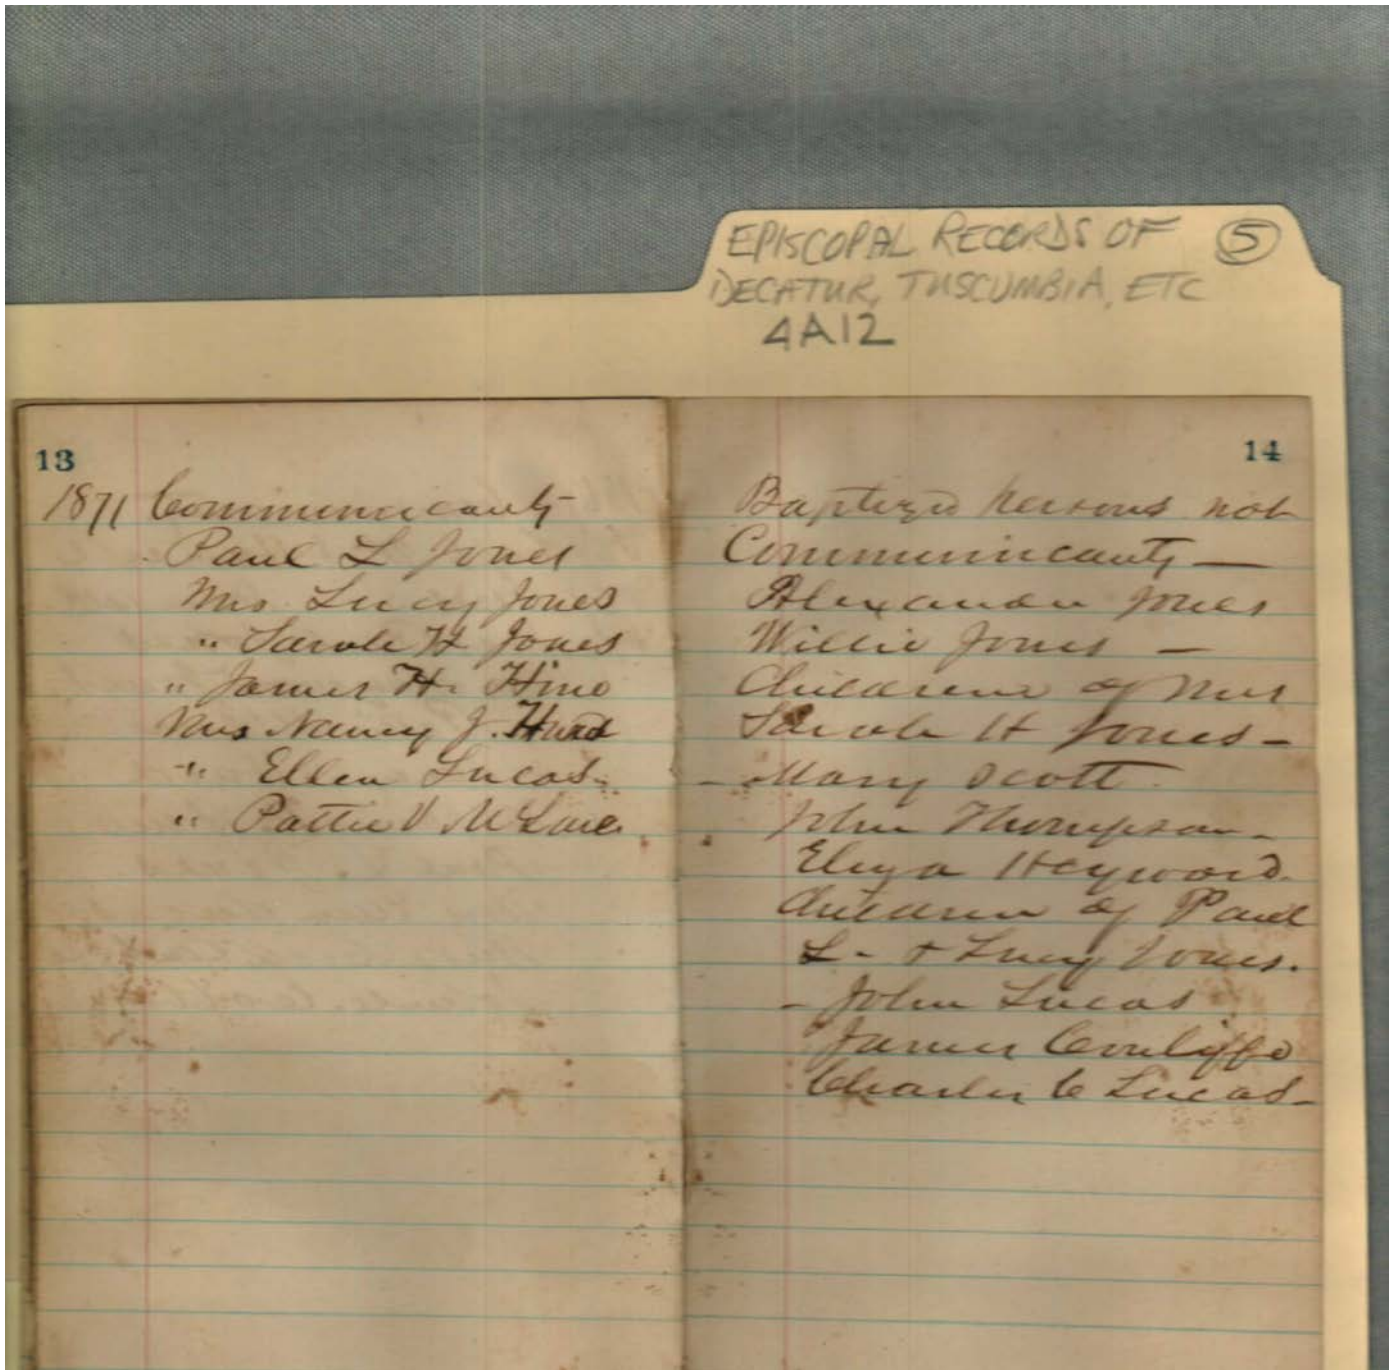 EPISCOPAL RECORDS OF 5
DECATUR, TUSCUMBIA, ETC
4A12
13
1871 Communicants
Paul L Jones
Mrs Lucy Jones
" Sarah H Jones
" James H. Hine
Mrs Nancy J. Hurd
" Ellen Lucas
" Pattie V
14
Baptized persons not
Communicants —
Alexander Jones
Willie Jones —
Children of Mrs
Sarah H Jones -
- Mary Scott
John Thompson -
Eliza Heyward.
Children of Paul
L. + Lucy Jones.
- John Lucas
James Cunliffe
Charles C Lucas -